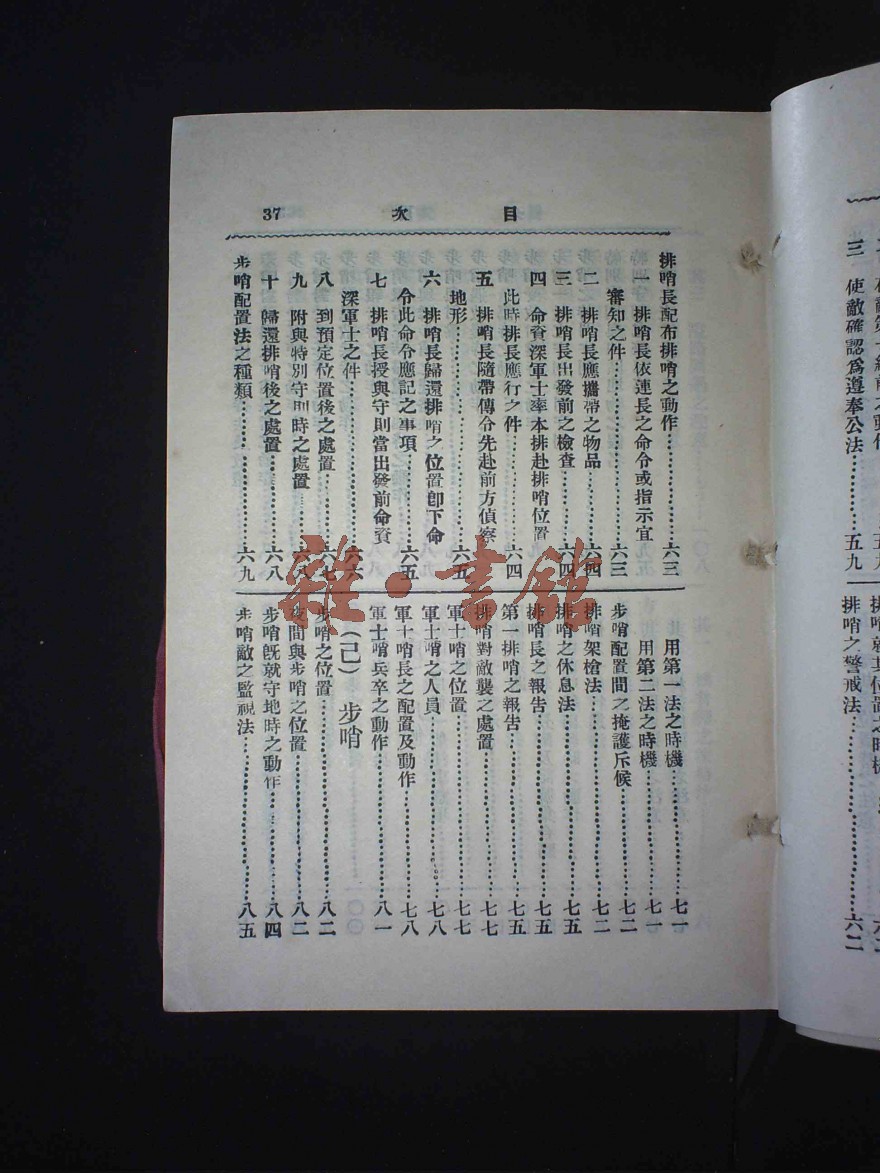 目次 37
排哨長配布排哨之動作……六三
一 排哨長依連長之命令或指示宜
審知之件……六三
二 排哨長應攜帶之物品……六四
三 排哨長出發前之檢查……六四
四 命資深軍士率本排赴排哨位置
此時排長應行之件……六四
五 排哨長隨帶傳令先赴前方偵察
地形……六五
六 排哨長歸還排哨之位置卽下命
令此命令應記之事項……六五
七 排哨長授與守則當出發前命資
深軍士之件……六六
八 到預定位置後之處置……六七
九 附與特別守則時之處置……六八
十 歸還排哨後之處置……六八
步哨配置法之種類……六九
用第一法之時機……七一
用第二法之時機……七一
步哨配置間之掩護斥候……七二
排哨架槍法……七二
排哨之休息法……七五
排哨長之報告……七五
第一排哨之報告……七五
排哨對敵襲之處置……七七
軍士哨之位置……七七
軍士哨之人員……七八
軍士哨長之配置及動作……七八
軍士哨兵卒之動作……八一
（己）步哨
步哨之位置……八二
夜間與步哨之位置……八二
步哨旣就守地時之動作……八四
步哨敵之監視法……八五
三 使敵確認爲遵奉公法……五九
排哨之警戒法……六二
雜·書館